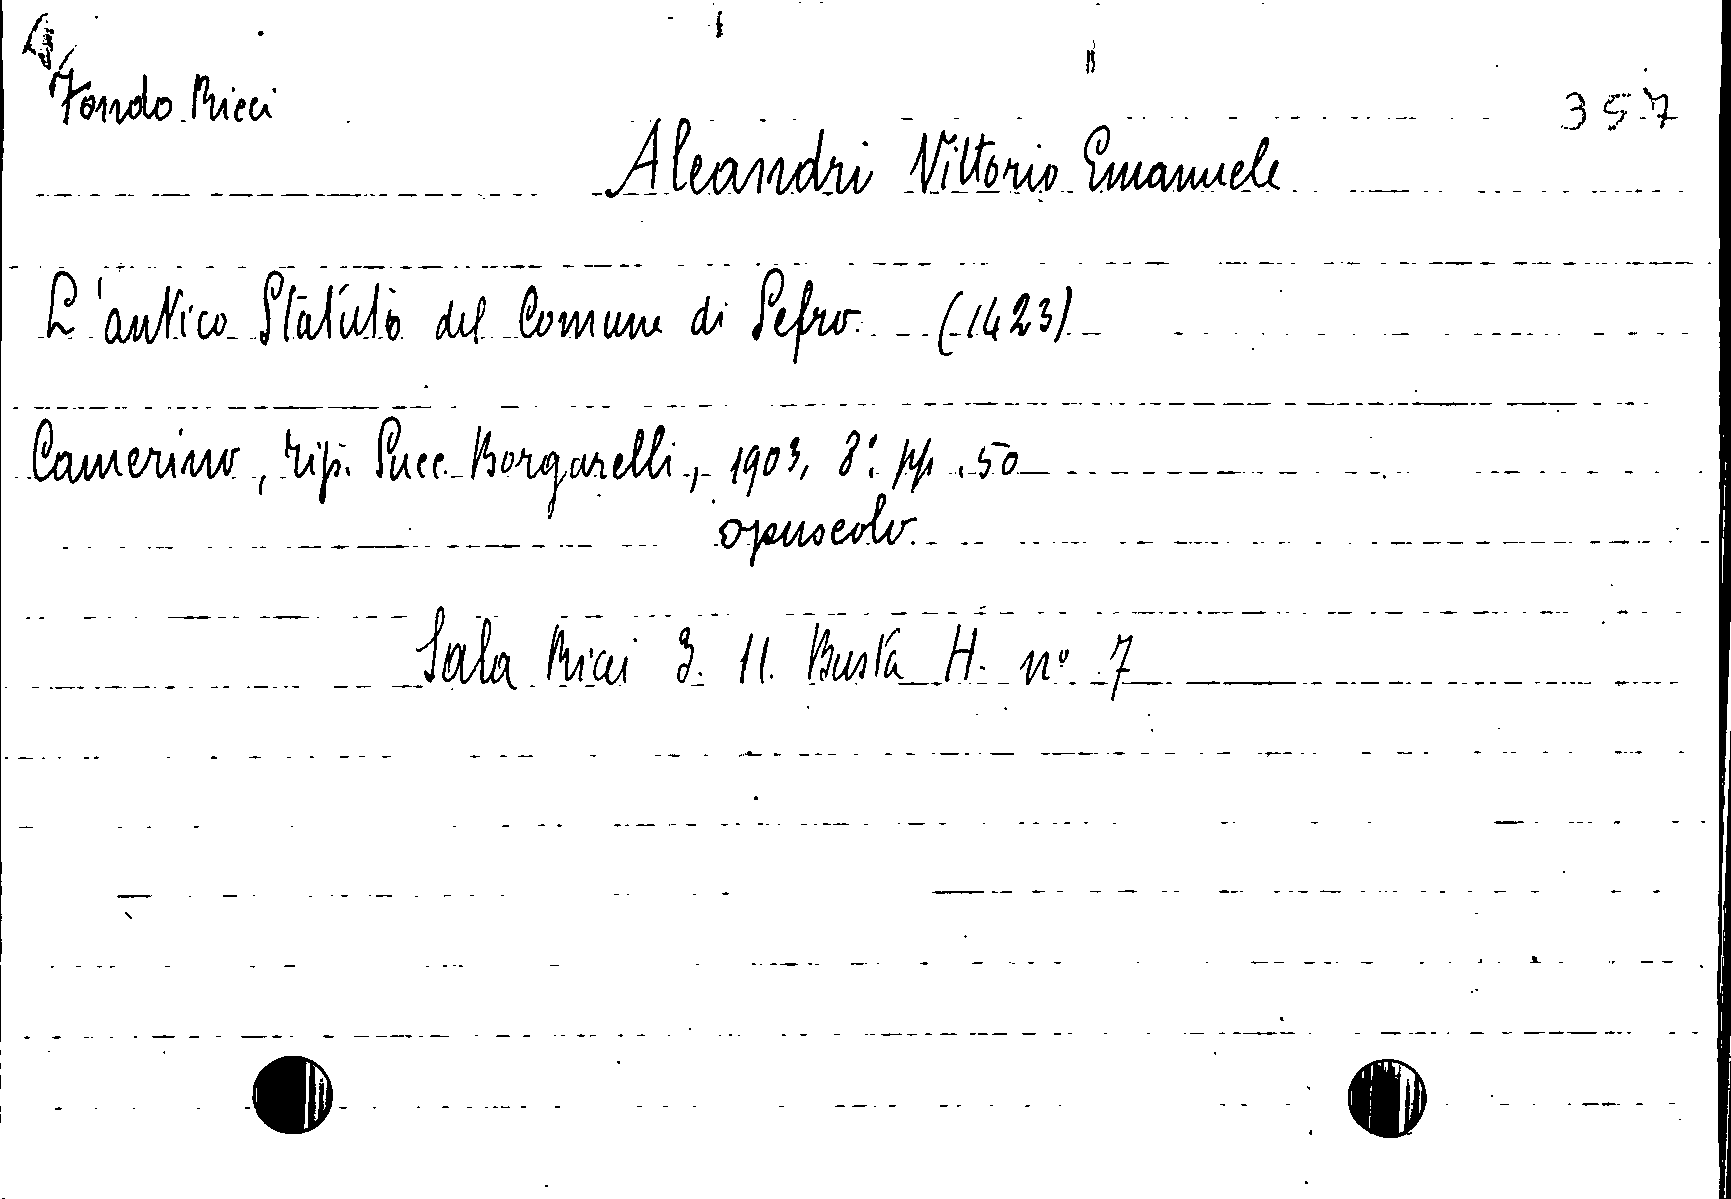 Fondo Ricci
357
Aleandri Vittorio Emanuele
L'antico Statuto del Comune di Sefro. (1423)
Camerino, tip. Succ. Borgarelli, 1903, 8°. pp. 50
opuscolo.
Sala Ricci 3. 11. Busta H. n° 7